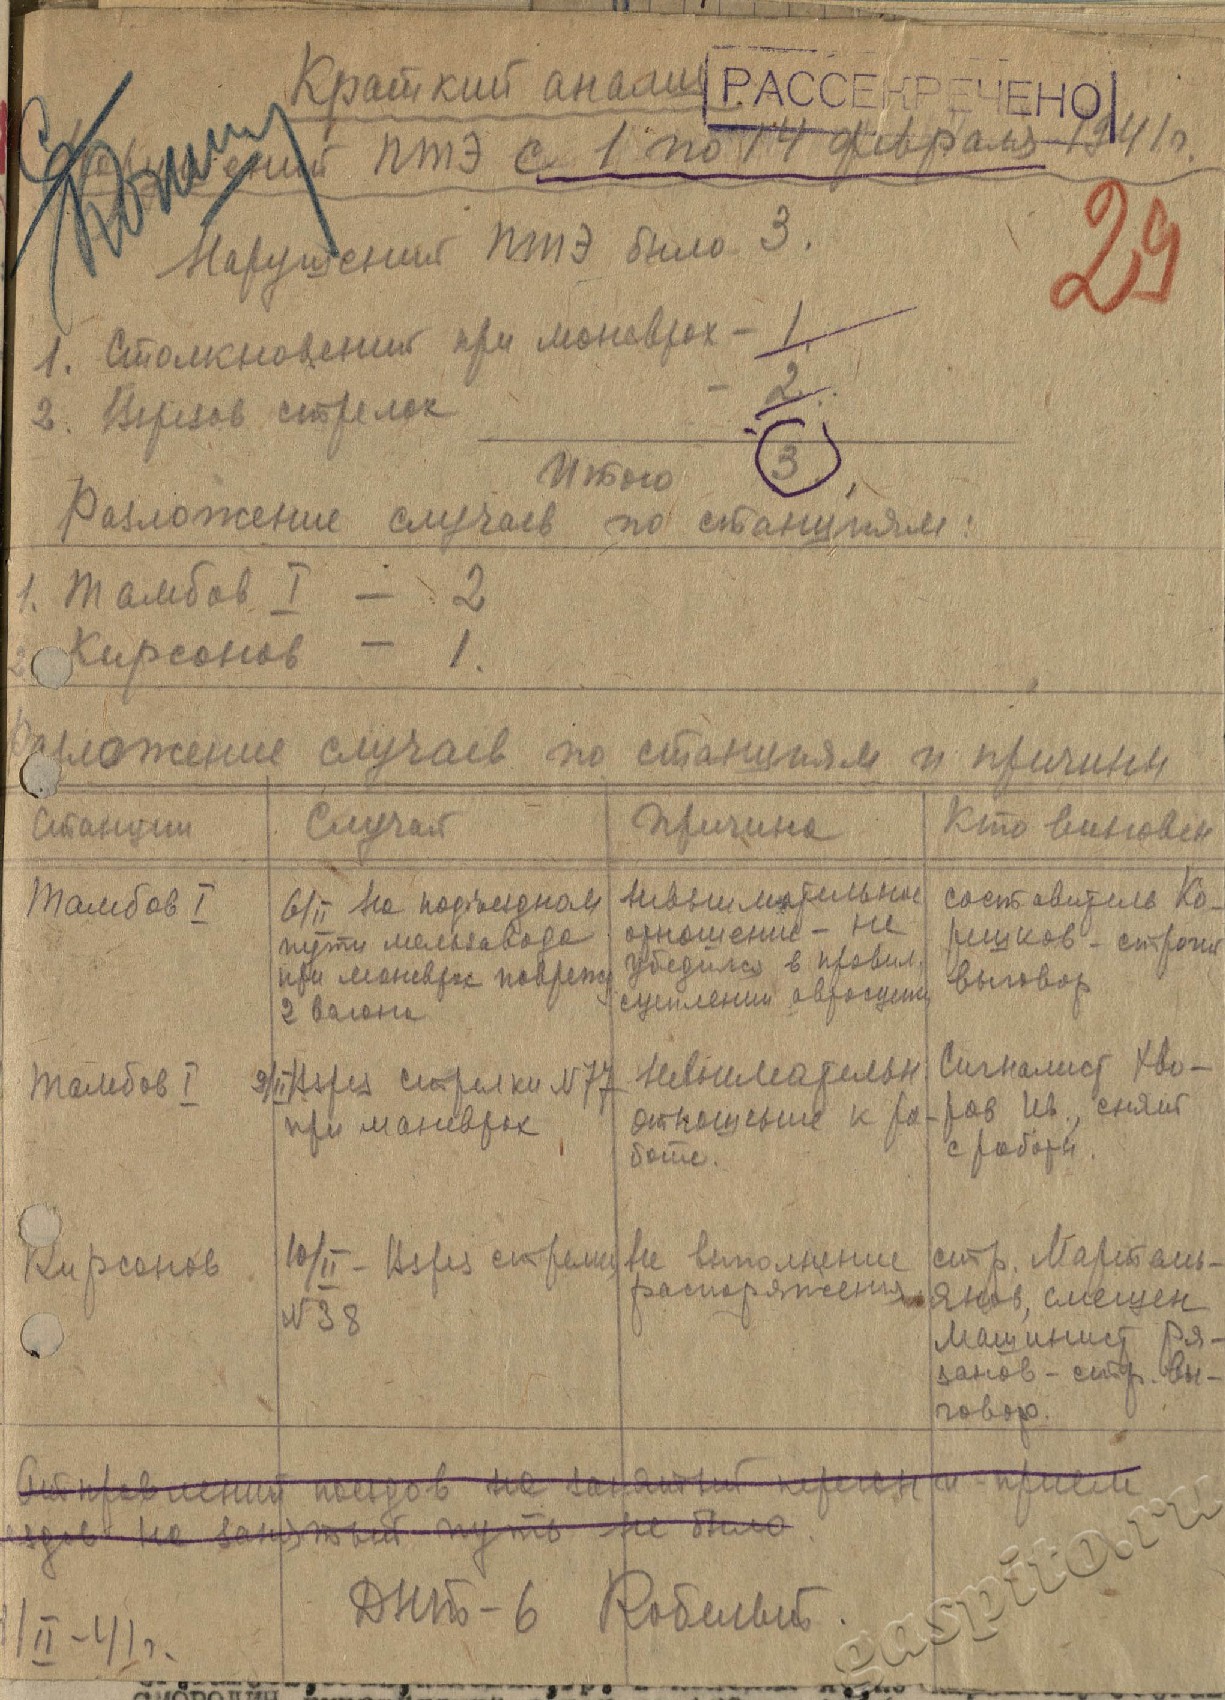 Краткий анализ
РАССЕКРЕЧЕНО
нарушений ПТЭ с 1 по 14 февраля 1941 г.
29
Нарушений ПТЭ было 3.
1. Столкновений при маневрах – 1.
2. Взрезов стрелок – 2.
Итого 3
Разложение случаев по станциям:
1. Тамбов I – 2
2. Кирсанов – 1.
Разложение случаев по станциям и причины
Станции Случай Причина Кто виновен
Тамбов I
6/II на подъездном
пути мельзавода
при маневрах поврежд
2 вагона
Невнимательное
отношение – не
убедился в правил.
сцеплении автосцепк
составитель Ко-
решков – строгий
выговор
Тамбов I
9/II Взрез стрелки N 77
при маневрах
Невнимательн.
отношение к ра-
боте.
Сигналист Хво-
ров Ив., снят
с работы.
Кирсанов
10/II – Взрез стрелки
N 38
Не выполнение
распоряжения
стр. Марталь-
янов, смещен
Машинист Ря-
занов – стр. вы-
говор.
Отправлений поездов на занятый перегон и прием
ездов на занятый путь не было.
ДНТО-6
/II – 41 г.
gaspito.ru